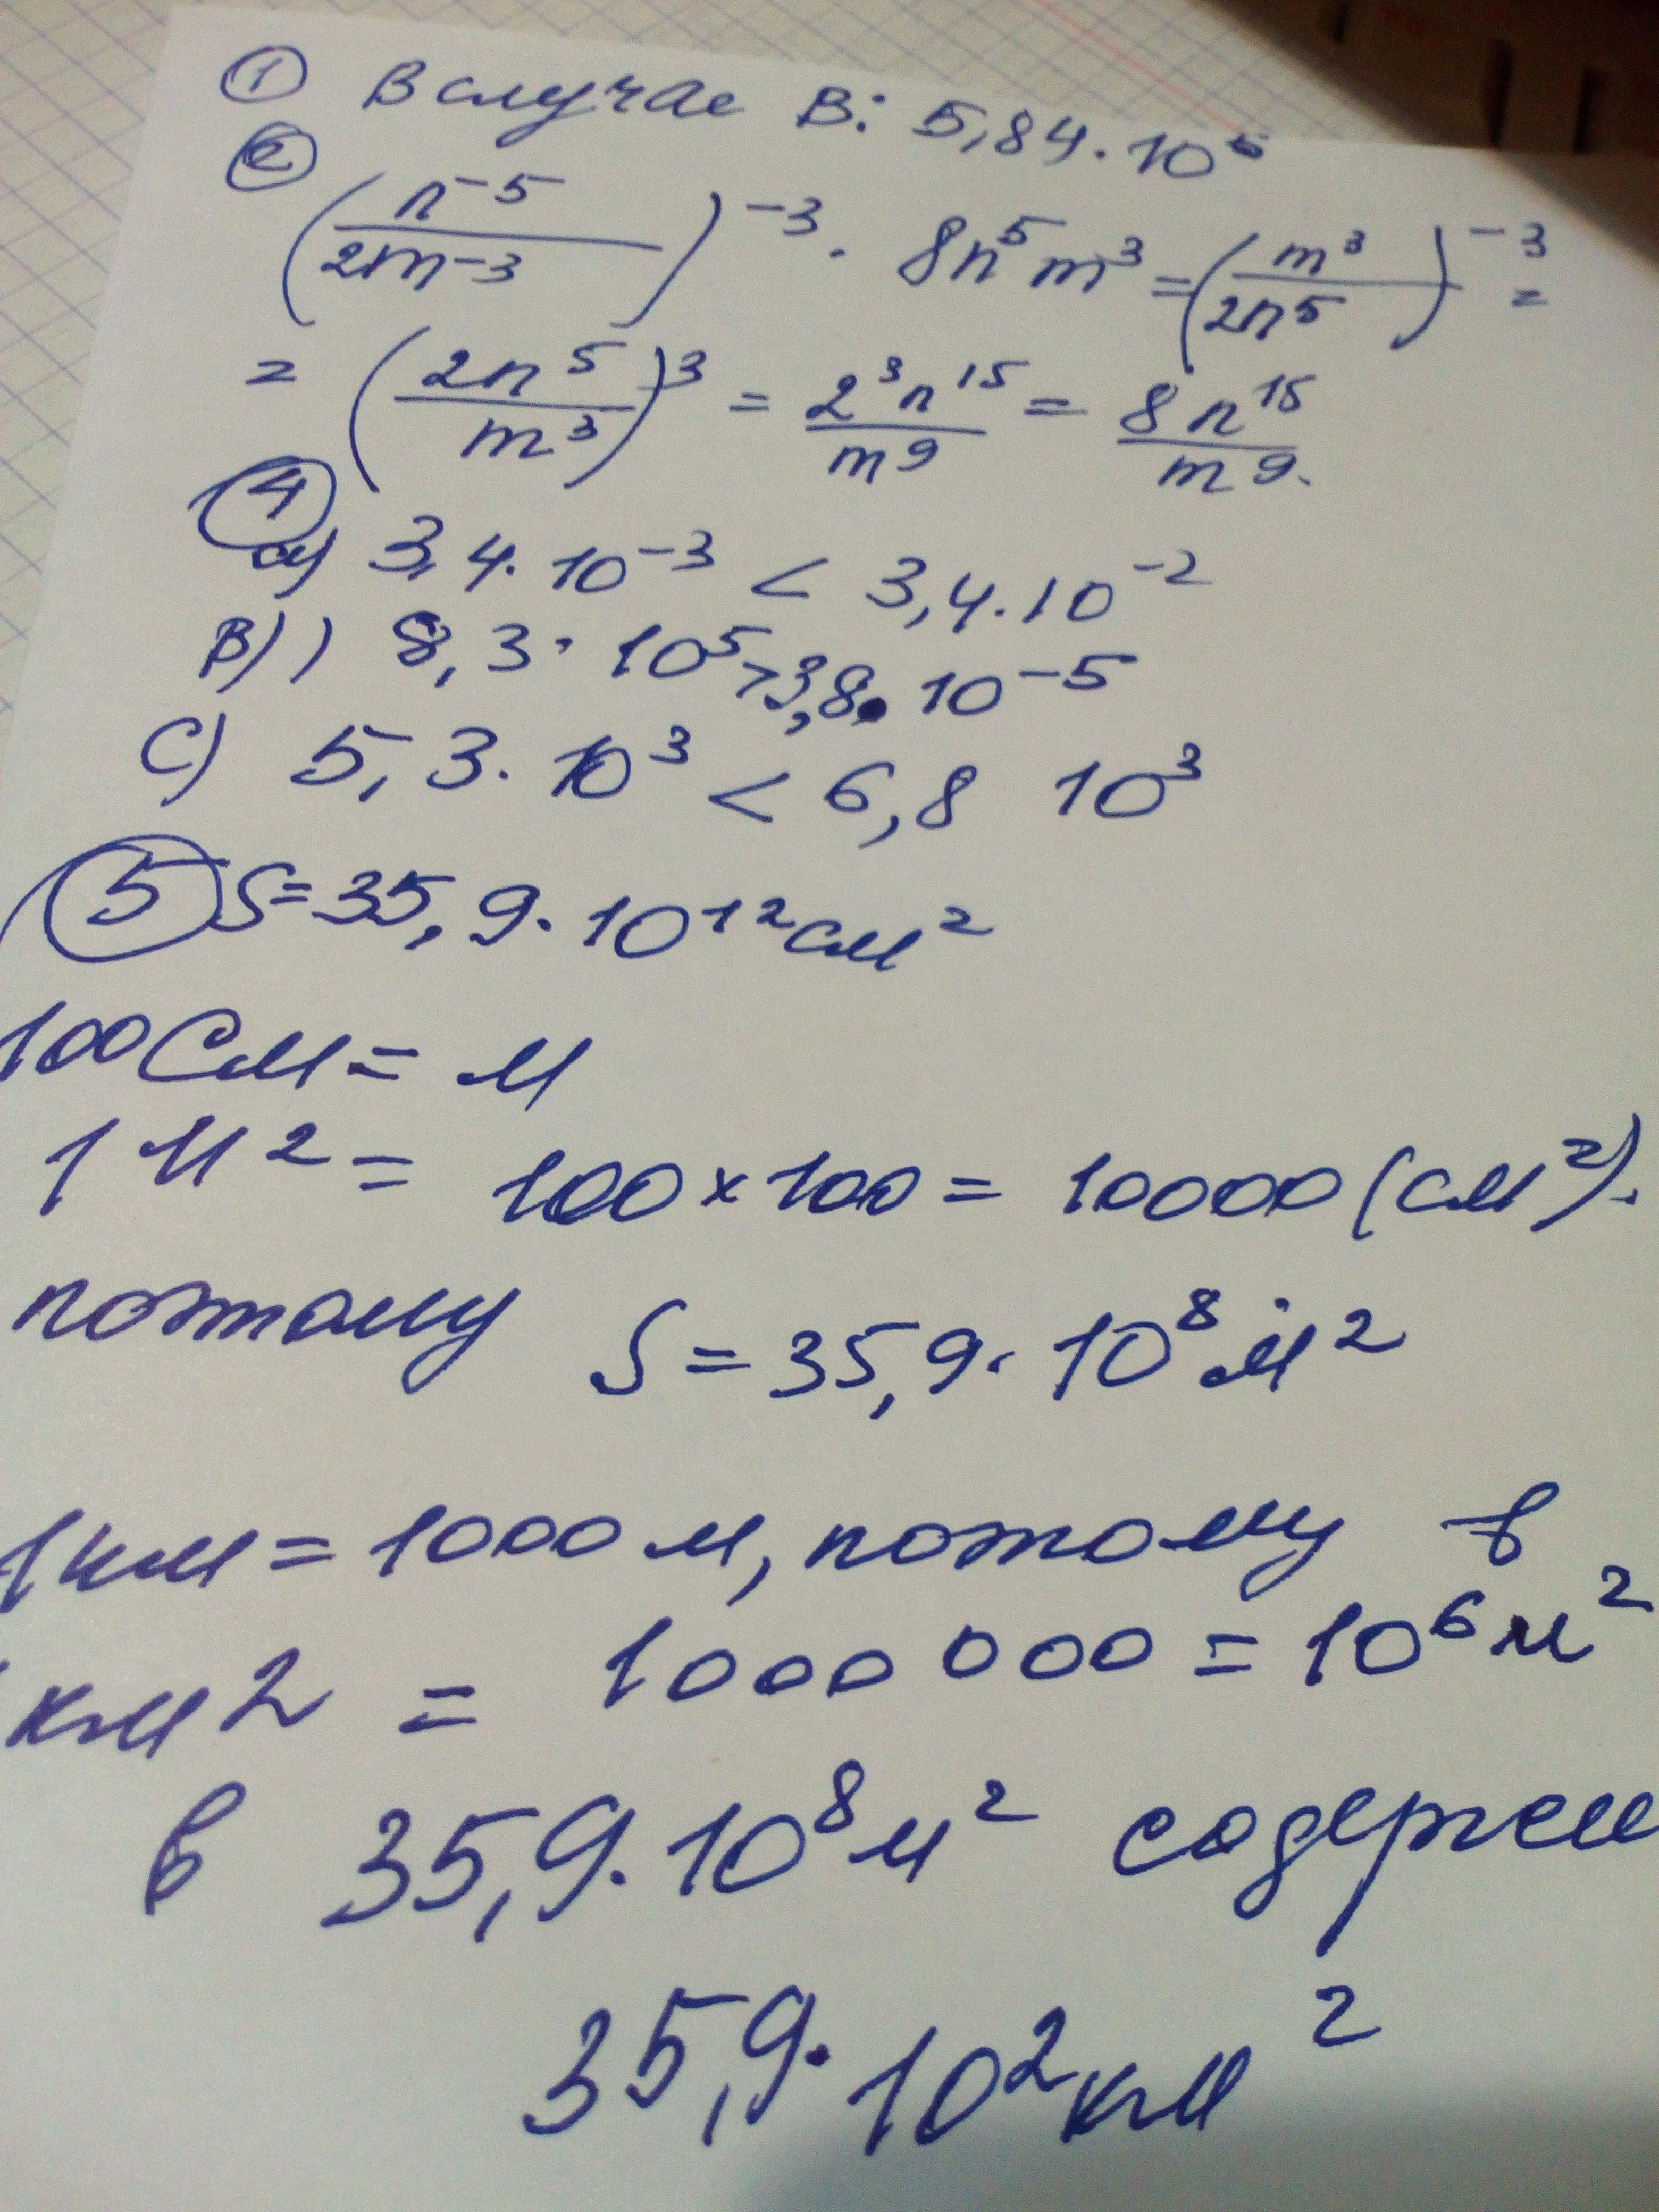 ① В случае В: 5,84·10⁵
②
(n⁻⁵/2m⁻³)⁻³ · 8n⁵m³ = (m³/2n⁵)⁻³ =
= (2n⁵/m³)³ = 2³n¹⁵/m⁹ = 8n¹⁵/m⁹.
④
а) 3,4·10⁻³ < 3,4·10⁻²
В)) 8,3·10⁵ > 3,8·10⁻⁵
С) 5,3·10³ < 6,8 10³
⑤ S=35,9·10¹²см²
100см= м
1 м² = 100×100 = 10000 (см²).
потому S = 35,9·10⁸ м²
1км = 1000 м, потому в
км2 = 1000 000 = 10⁶ м²
в 35,9·10⁸ м² содержи
35,9·10² км²